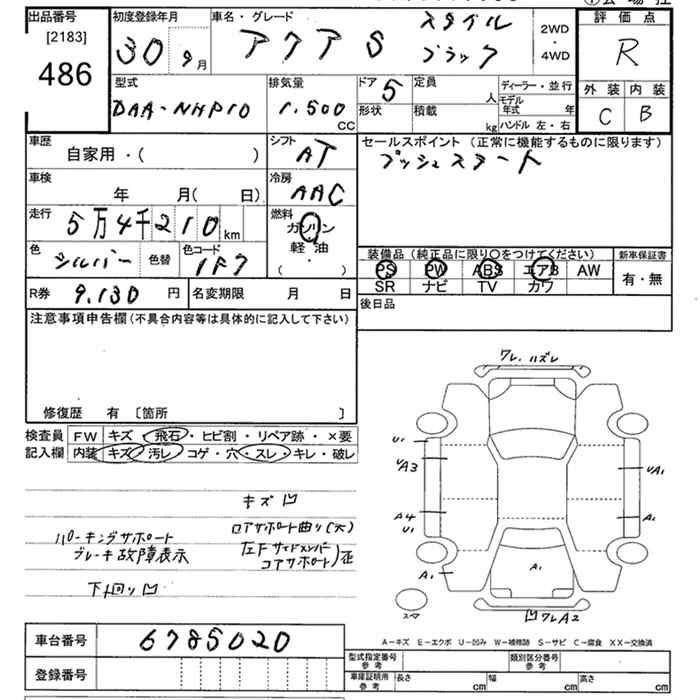 出品番号
[2183]
486
初度登録年月
30 9月
車名・グレード
アクア S スタイル
ブラック
2WD
・
4WD
評価点
R
外装 内装
C B
型式
DAA-NHP10
排気量
1.500
CC
ドア 5
形状
定員
人
積載
kg
ディーラー・並行
モデル
年式 年
ハンドル 左・右
車歴
自家用・( )
シフト
AT
車検
年 月( 日)
冷房
AAC
走行
5万4千210km
燃料
ガソリン
軽・油
( ・ )
色
シルバー
色替
色コード
1F7
R券 9.130 円
名変期限 月 日
セールスポイント (正常に機能するものに限ります)
プッシュスタート
装備品(純正品に限り〇をつけてください)
PS PW ABS エアB AW
SR ナビ TV カワ
新車保証書
有・無
後日品
注意事項申告欄(不具合内容等は具体的に記入して下さい)
修復歴 有 〔箇所 〕
検査員
記入欄
FW キズ・飛石・ヒビ割・リペア跡・×要
内装 キズ・汚レ・コゲ・穴・スレ・キレ・破レ
キズ凹
パーキングサポート
ブレーキ故障表示
コアサポート曲り(大)
左Fサイドメンバー
コアサポート)正
下廻り凹
ワレ、ハズレ
U1
UA3
A4
U1
A1
UA1
A1
A1
スマ
凹ワレA2
A-キズ E-エクボ U-凹み W-補修跡 S-サビ C-腐食 XX-交換済
車台番号
6785020
登録番号
型式指定番号
参考
類別区分番号
参考
車庫証明用
参考
長さ cm 幅 cm 高さ cm